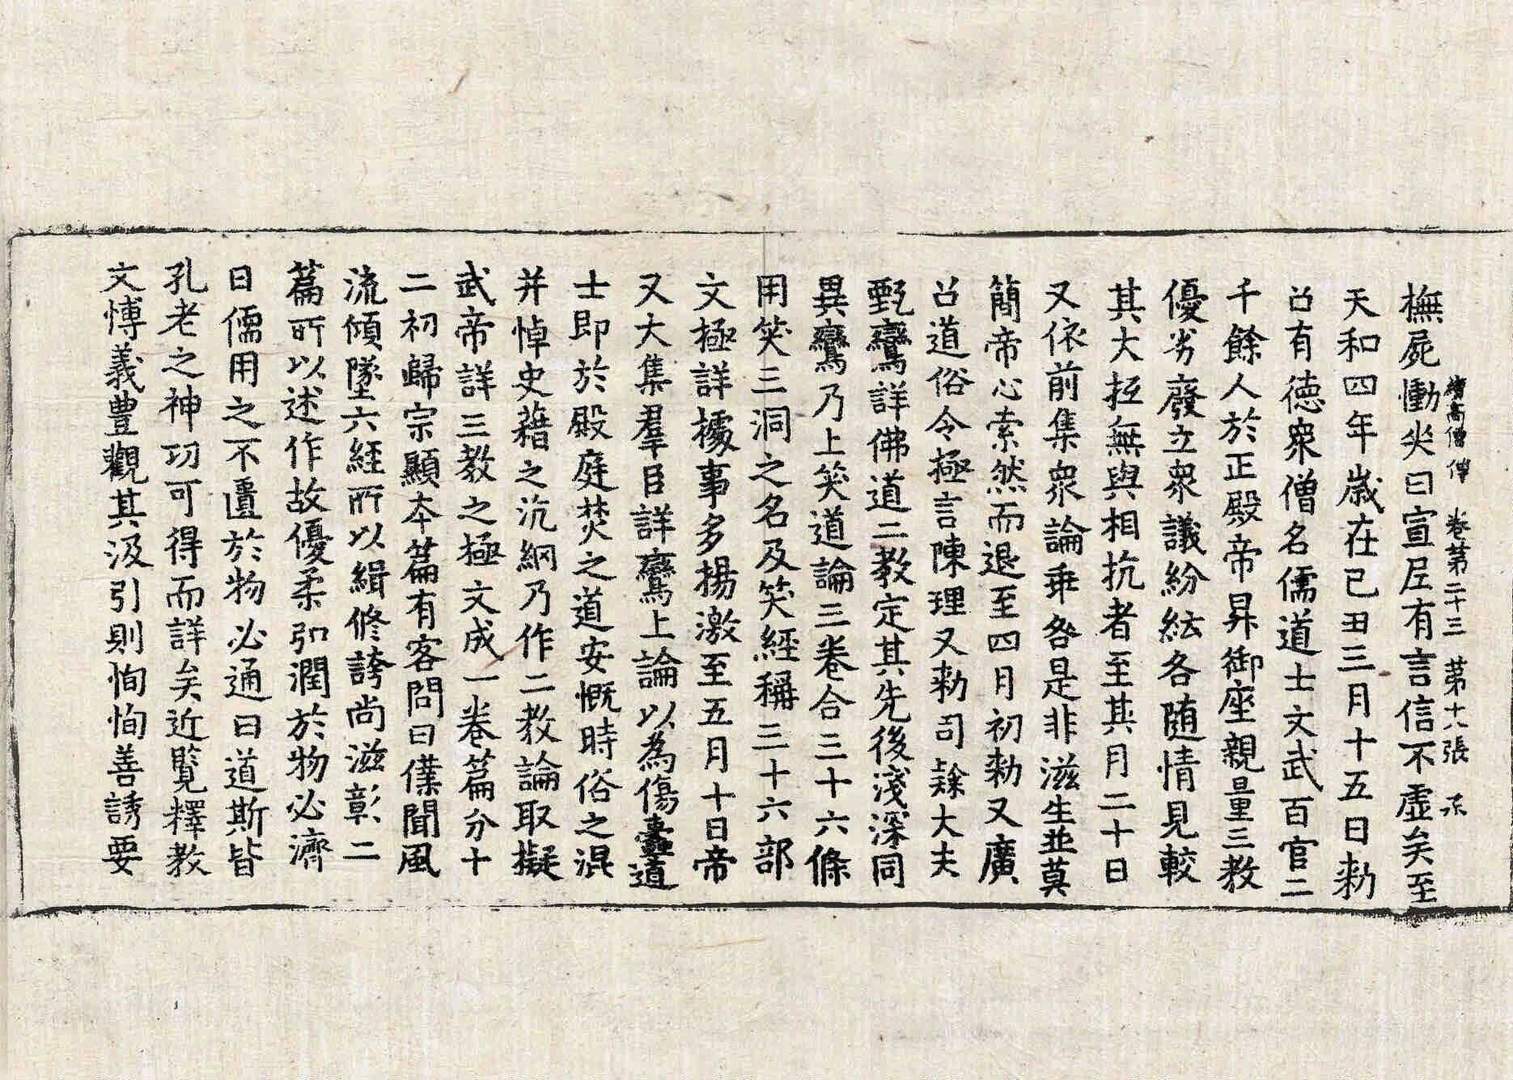 撫屍慟㷉曰宣尼有言信不虛矣至
續高僧傳 卷第二十三 第十八張
天和四年歲在己丑三月十五日勑
召有德衆僧名儒道士文武百官二
千餘人於正殿帝昇御座親量三教
優劣廢立衆議紛紜各隨情見較
其大抵無與相抗者至其月二十日
又依前集衆論乖咎是非滋生並莫
簡帝心索然而退至四月初勑又廣
召道俗令極言陳理又勑司隸大夫
甄鸞詳佛道二教定其先後淺深同
異鸞乃上笑道論三卷合三十六條
用笑三洞之名及笑經稱三十六部
文極詳據事多揚激至五月十日帝
又大集羣臣詳鸞上論以為傷蠹道
士即於殿庭焚之道安慨時俗之混
并悼史藉之沉網乃作二教論取擬
武帝詳三教之極文成一卷篇分十
二初歸宗顯本篇有客問曰僕聞風
流傾墜六經所以緝修誇尚滋彰二
篇所以述作故優柔弘潤於物必濟
曰儒用之不匱於物必通曰道斯皆
孔老之神功可得而詳矣近覽釋教
文博義豊觀其汲引則恂恂善誘要